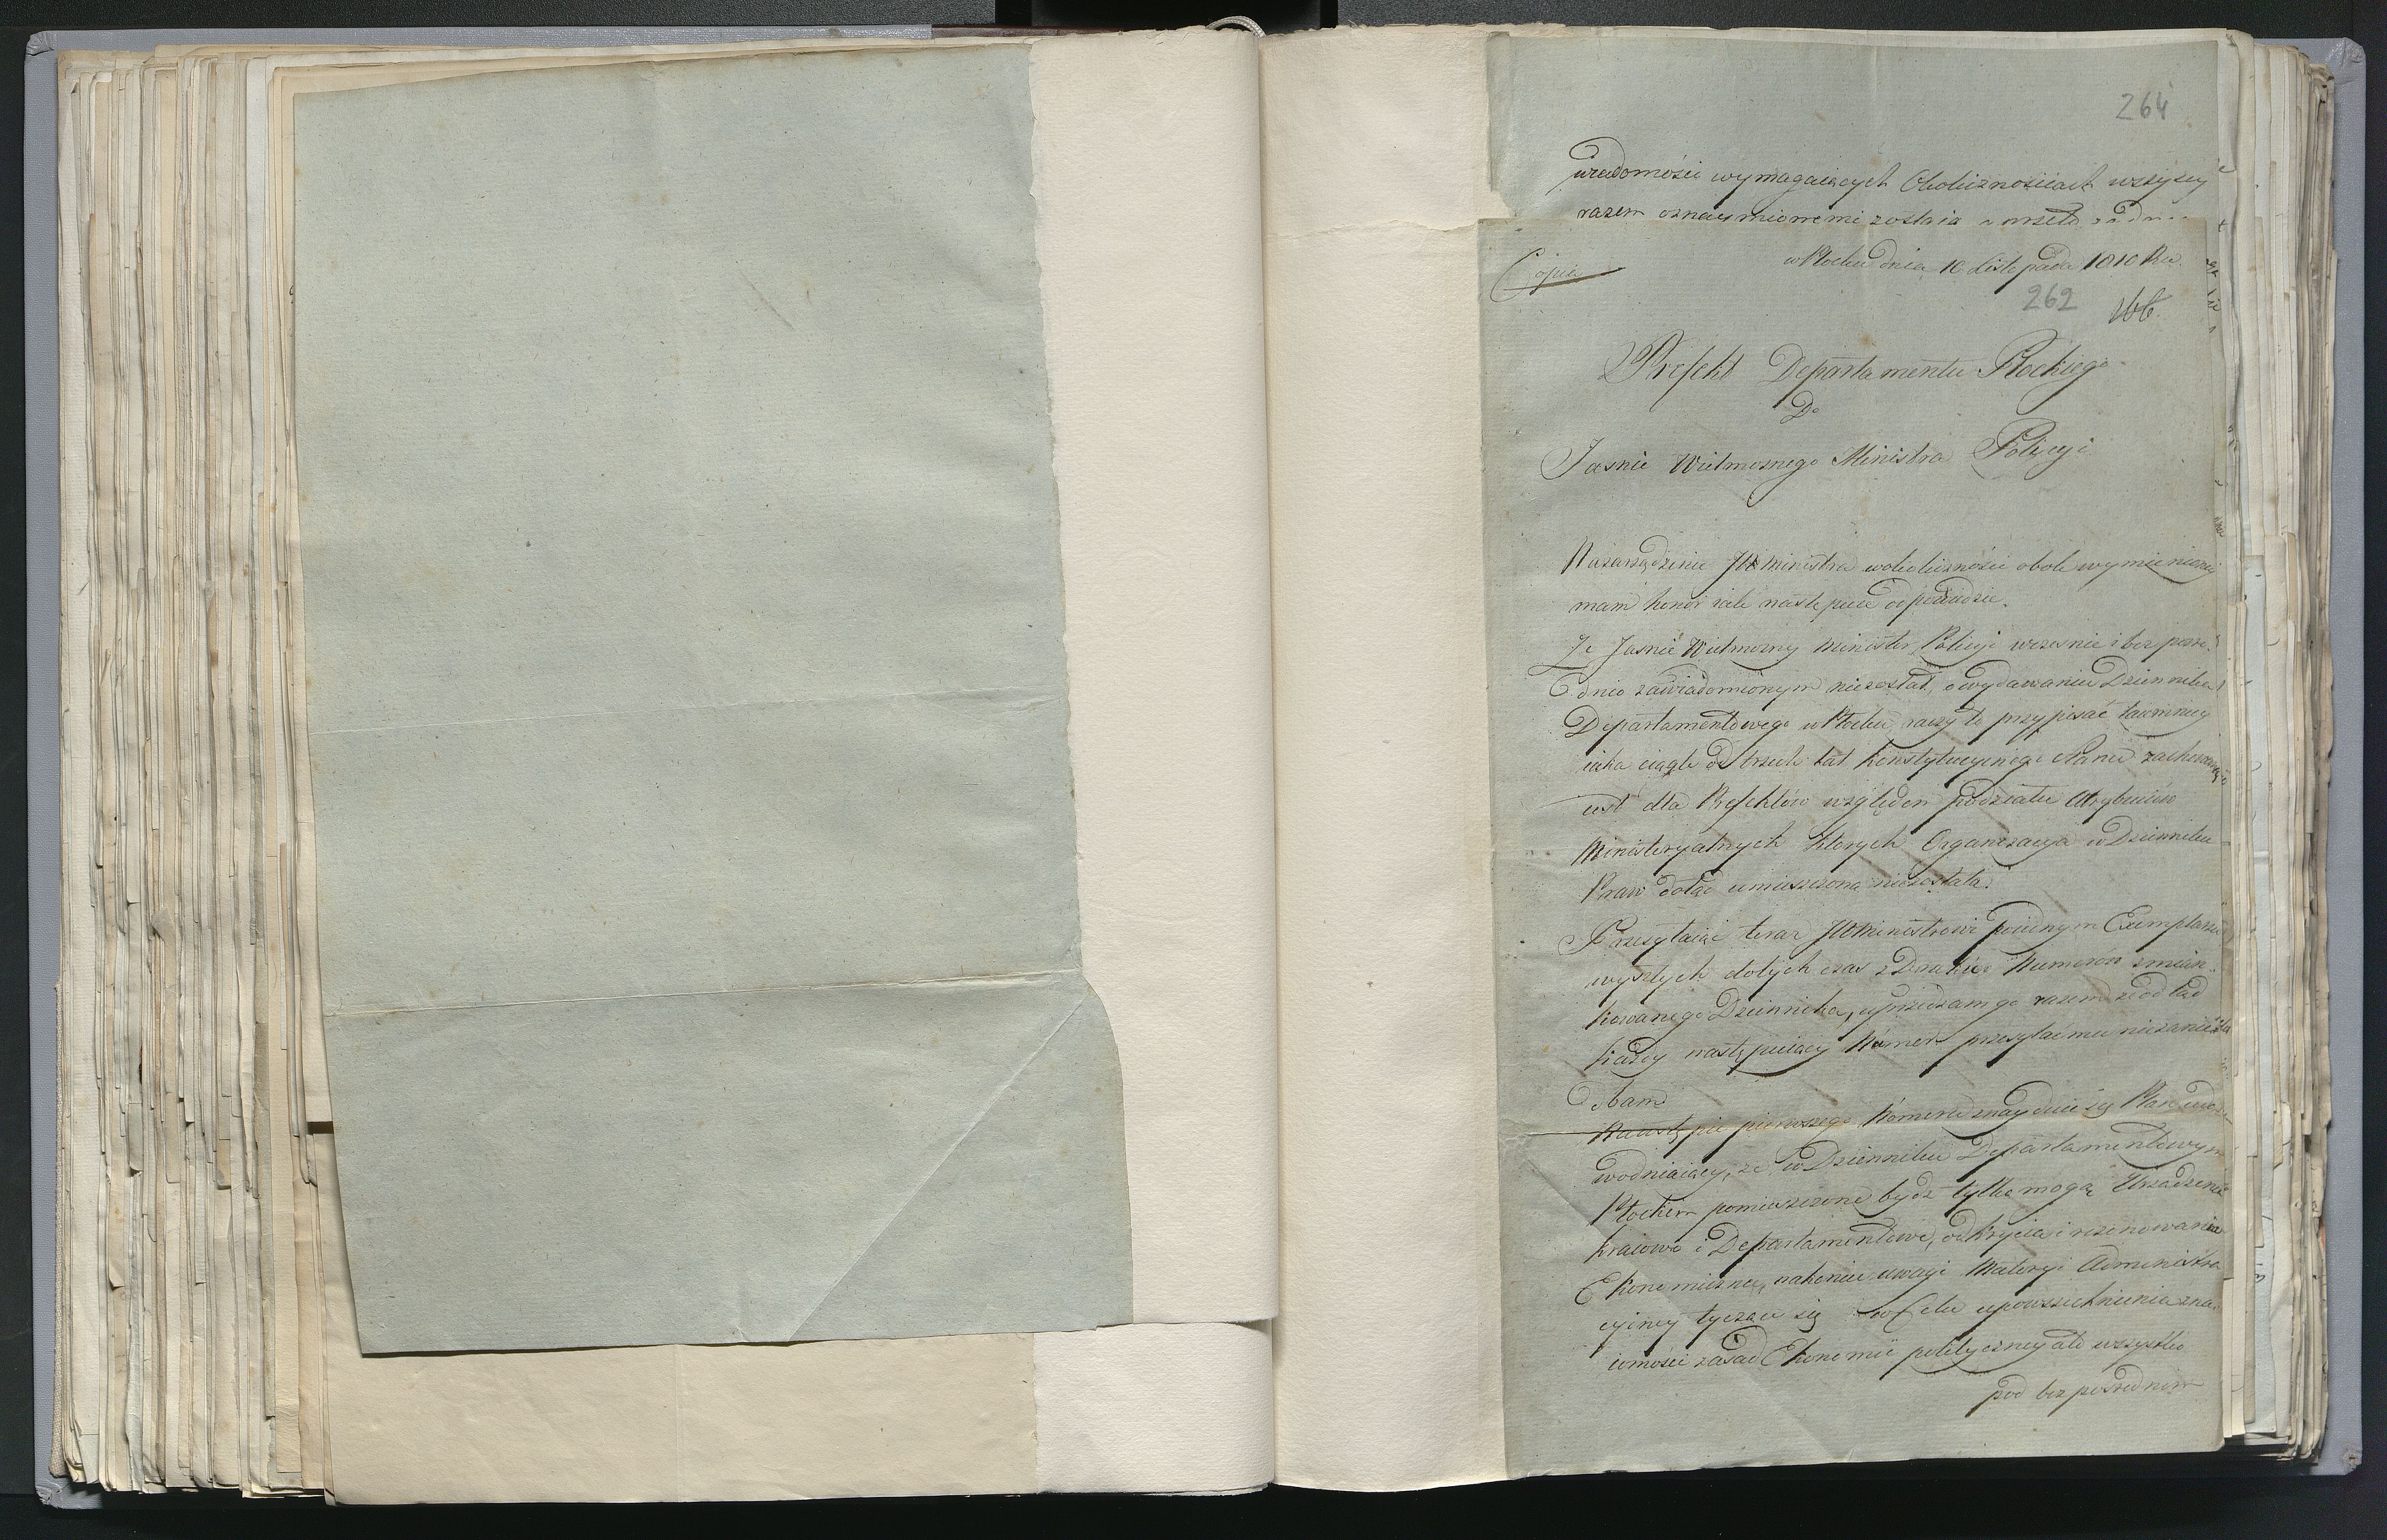 264
wiadomości wymagaiących Okolicznościach wszyscy
razem oznaymionemi zostaią a wszelk
Copia
w Płocku dnia 10 Listopada 1810 Ru.
262
Prefekt Departamentu Płockiego
Do
Jasnie Wielmoznego Ministra Policyi
Na zarządzenie JW Ministra w okoliczności obok wymienioney
mam honor iak następuie odpowiedzieć.
Ze Jasnie Wielmozny Minister Policyi wczesnie i bez posre-
dnio zawiadomionym niezostał, o wydawaniu Dziennika
Departamentowego w Płocku, raczy to przypisać taiemnicy
iaka ciągle od trzech lat konstytucyinego Stanu zachowaną
iest dla Prefektów względem podziału Atrybucyiów
Ministeryalnych których Organizacya w Dzienniku
Praw dotąd umieszczona niezostała.
Przesyłaiąc teraz JW Ministrowi po iednym Exemplarzu
wyszłych dotych czas z Druku Numerów wzmian-
kowanego Dziennika, uprzedzam go razem ze odtąd
kazdy następuiący Numer przesyłać mu niezanied-
bam
Na wstępie pierwszego Numeru znayduie się Plan udo-
wodniaiący, ze w Dzienniku Departamentowym
Płockim pomieszczone bydz tylko mogą Urządzenia
kraiowe i Departamentowe, odkrycia i rozumowania
Ekonomiczne, nakoniec uwagi Materyi Administra-
cyiney tyczące się w Celu upowszechnienia zna-
iomości zasad Ekonomii polityczney ale wszystko
pod bezpośrednim